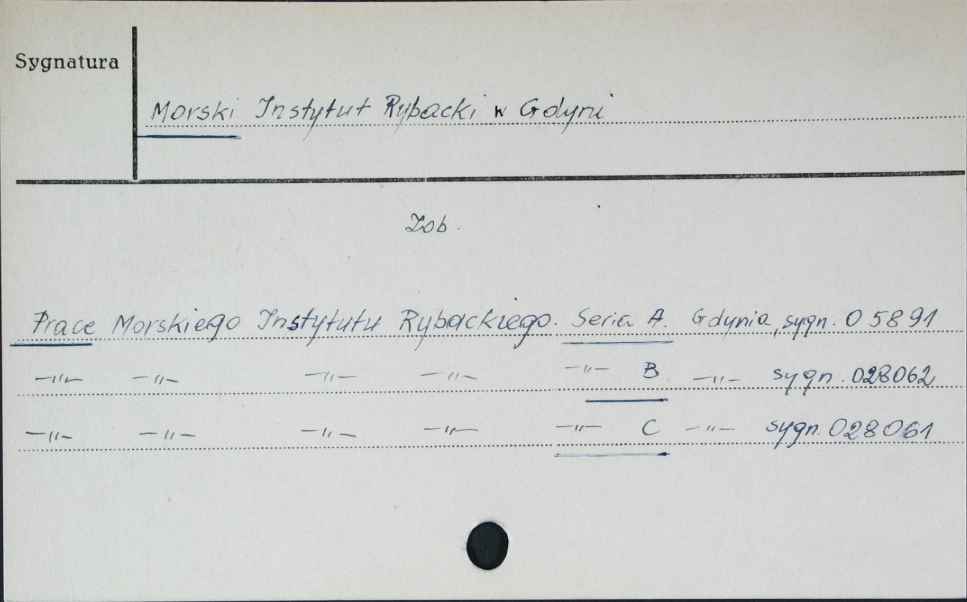 Sygnatura
Morski Instytut Rybacki w Gdyni
Zob.
Prace Morskiego Instytutu Rybackiego. Seria A. Gdynia, sygn. 05891
-"- -"- -"- -"- -"- B -"- sygn. 028062
-"- -"- -"- -"- -"- C -"- sygn. 028061